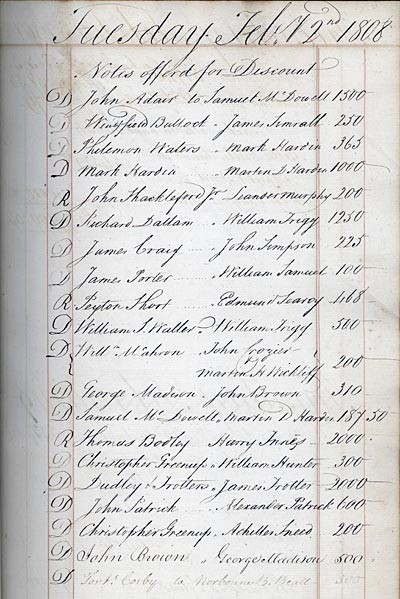 Tuesday Feb.y 2nd 1808
Notes offerd for Discount
D John Adair to Samuel McDowell 1500
D Winfield Bullock " James Simrall 250
D Philemon Waters " Mark Hardin 365
D Mark Hardin Martin D Hardin 1000
R John Shackleford Jr. Leander Murphy 200
D Richard Dallam " William Trigg 1250
D James Craig " John Simpson 225
D James Porter " William Samuel 100
R Peyton Short " Edmund Searcy 468
D William S Waller " William Trigg 500
D Willm McAhron John Crozier
& Martin H Wickliff 200
D George Madison " John Brown 310
D Samuel McDowell " Martin D Hardin 187.50
R Thomas Bodley Harry Innes 2000
D Christopher Greenup " William Hunter 300
D Dudley & Trotters " James Trotter 2000
D John Patrick Alexander Patrick 600
D Christopher Greenup " Achilles Sneed 200
D John Brown " George Madison 500
D to Norborne B. Beall 500